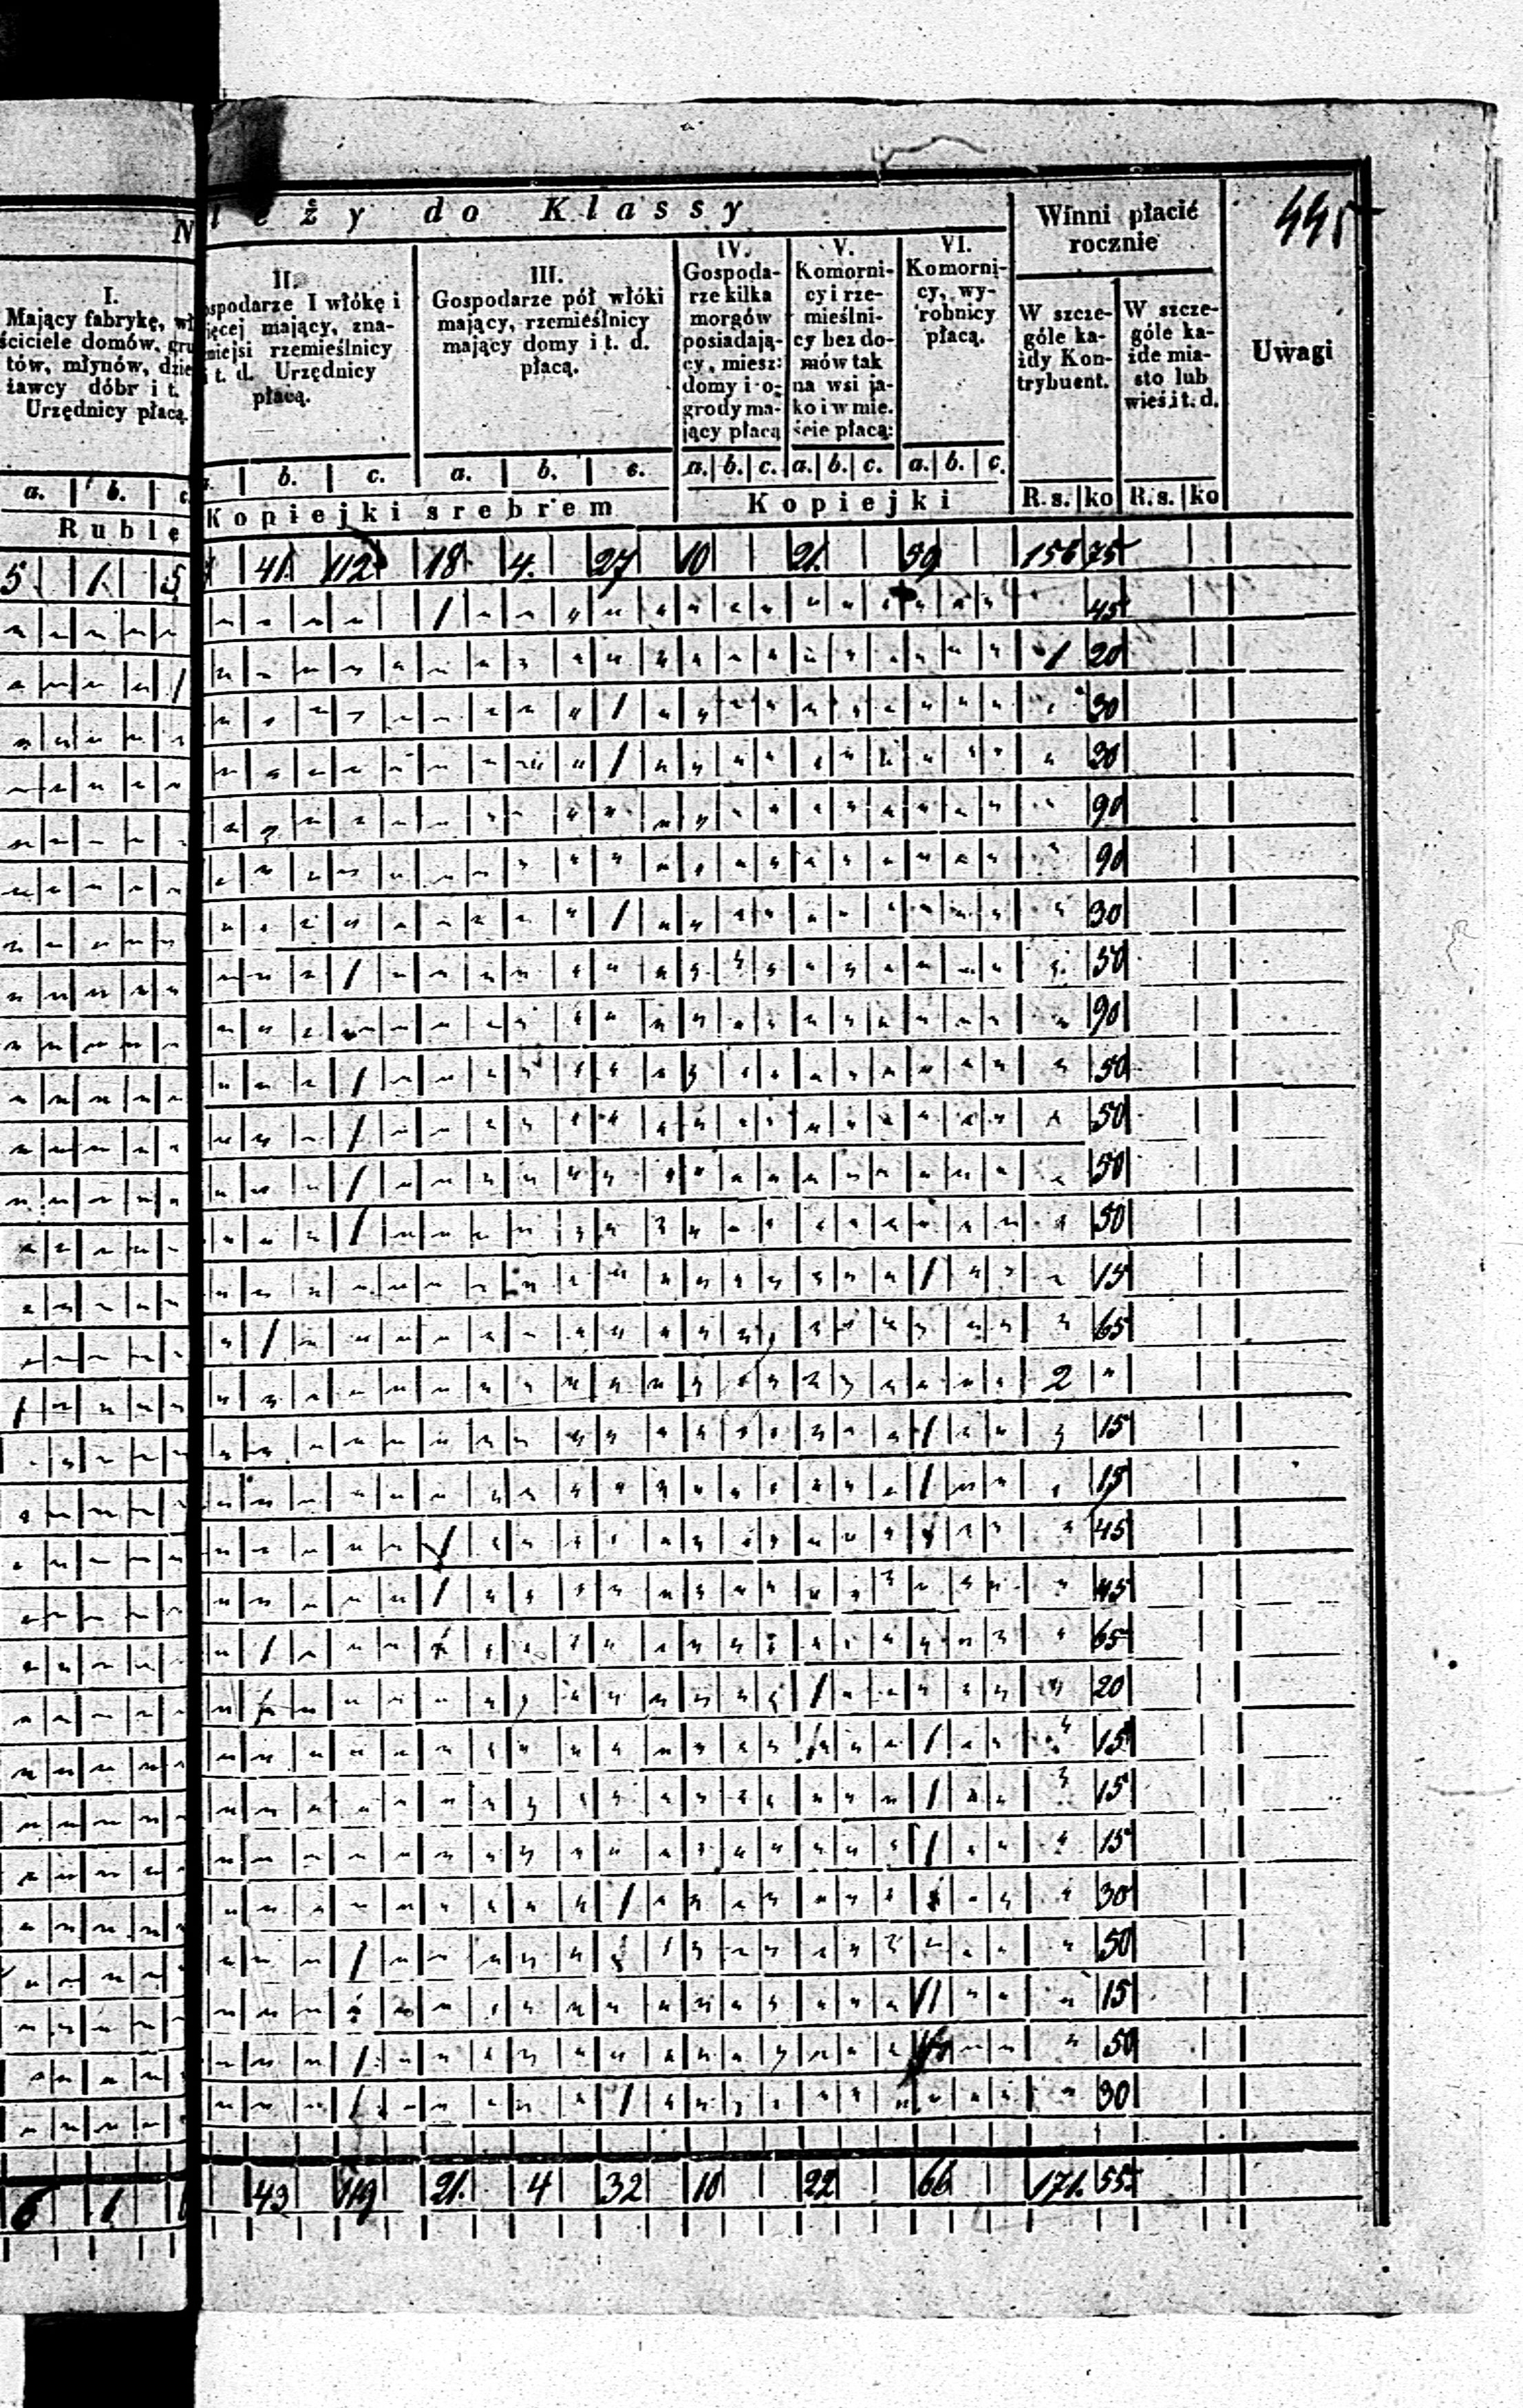 445
N
leży do Klassy
Winni płacić
rocznie
I.
Mający fabrykę, wł
ściciele domów, gru
tów, młynów, dzie
żawcy dóbr i t.
Urzędnicy płacą.
II.
ospodarze I włókę i
ięcej mający, zna-
mniejsi rzemieślnicy
i t. d. Urzędnicy
płacą.
III.
Gospodarze pół włóki
mający, rzemieślnicy
mający domy i t. d.
płacą.
IV.
Gospoda-
rze kilka
morgów
posiadają-
cy, miesz:
domy i o-
grody ma-
jący płacą
V.
Komorni-
cy i rze-
mieślni-
cy bez do-
mów tak
na wsi ja-
ko i w mie.
ście płacą:
VI.
Komorni-
cy, wy-
robnicy
płacą.
W szcze-
góle ka-
żdy Kon-
trybuent.
W szcze-
góle ka-
żde mia-
sto lub
wieś i t. d.
Uwagi
a. b. c. b. c. a. b. c. a. b. c. a. b. c. a. b. c.
Ruble Kopiejki srebrem Kopiejki R.s. ko R.s. ko
5 1 5 41 112 18 4 27 10 21 59 156 75
1 45
1 1 20
1 30
1 30
90
90
1 30
1 50
90
1 50
1 50
1 50
1 50
1 15
1 65
1 2 "
1 15
1 15
1 45
1 45
1 65
1 20
1 15
1 15
1 15
1 30
1 50
1 15
1 50
1 30
6 1 43 119 21 4 32 10 22 66 171 55